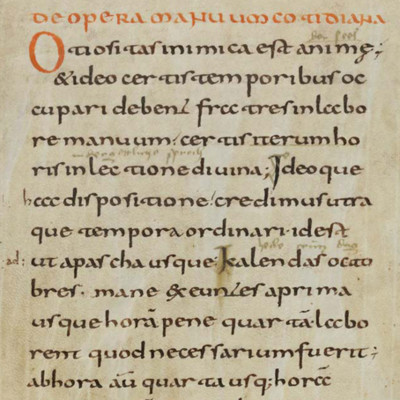 DE OPERA MANUUM COTIDIANA
Otiositas inimica est animę;
& ideo certis temporibus oc
cupari debent fratres in labo
re manuum; certis iterum ho
ris in lectione divina; Ideoque
hac dispositione credimus utra
que tempora ordinari. idest
ad: ut a pascha usque kalendas octo
bres. mane exeuntes a prima
usque horā pene quartā labo
rent quod necessarium fuerit;
ab hora aū quarta usq; horā